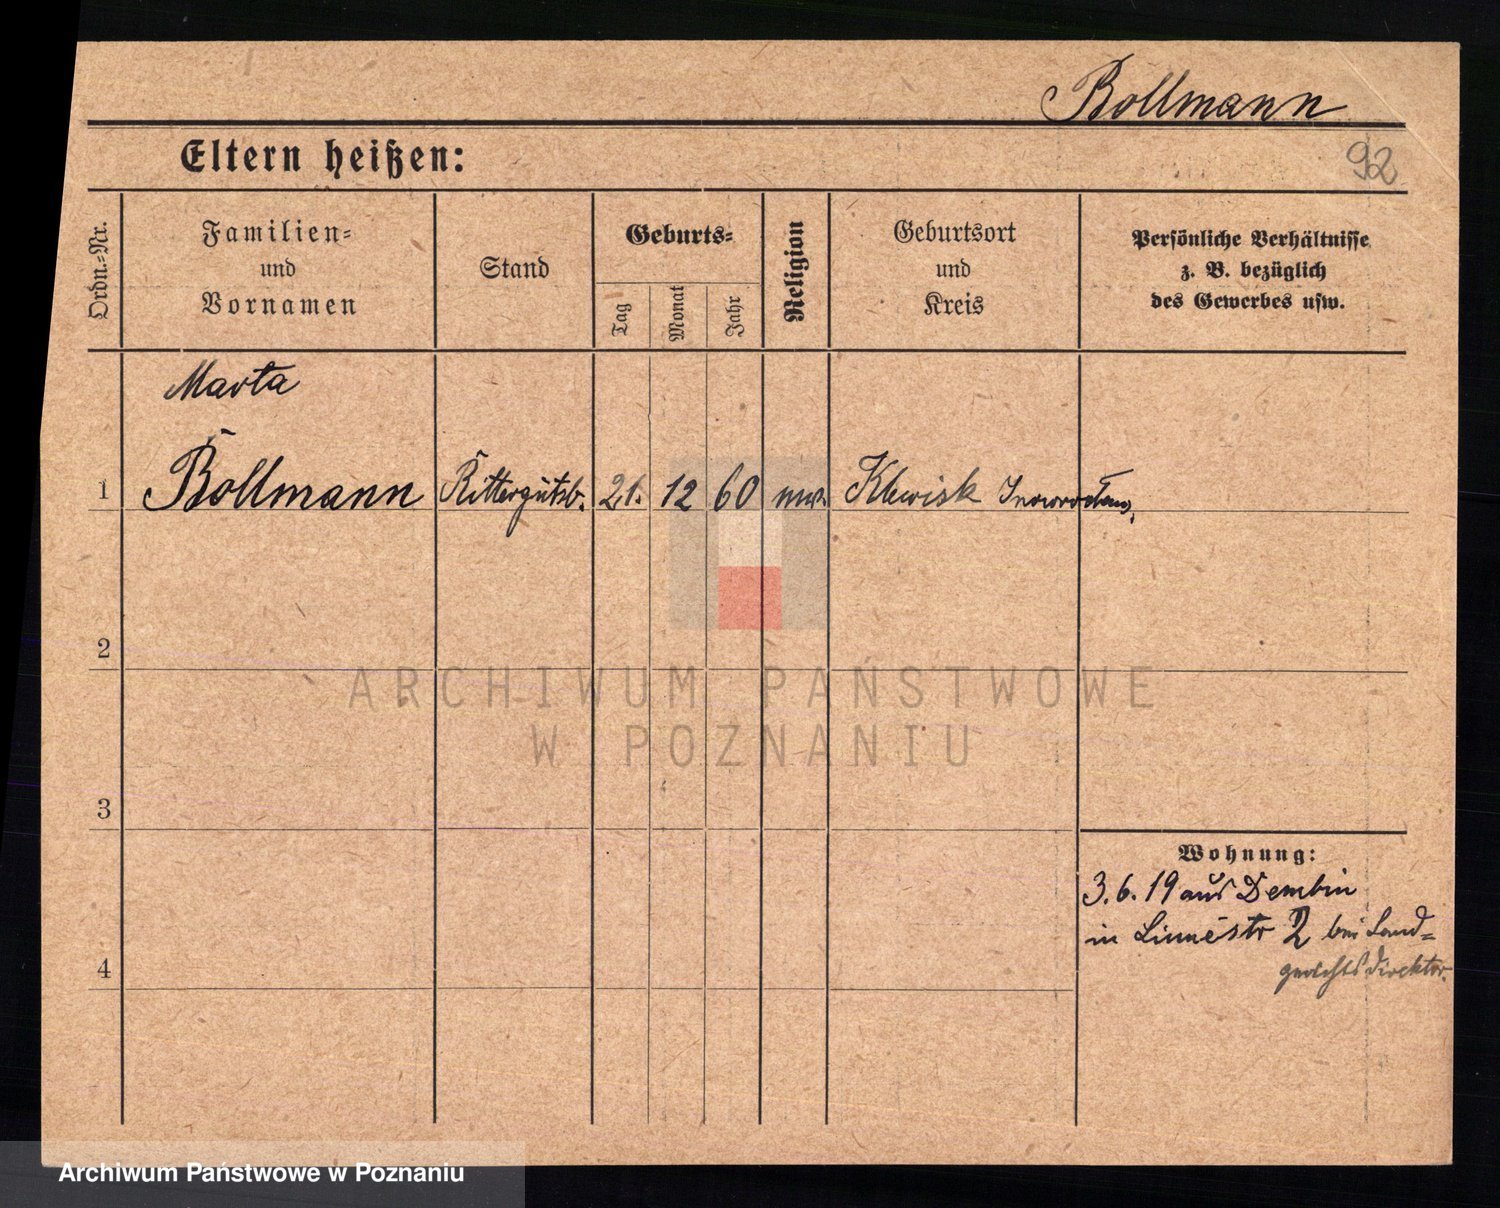 Bollmann
Eltern heißen:
92
Ordn.-Nr.
Familien-
und
Vornamen
Stand
Geburts-
Tag
Monat
Jahr
Religion
Geburtsort
und
Kreis
Persönliche Verhältnisse
z. B. bezüglich
des Gewerbes usw.
Marta
1 Bollmann Rittergutsb. 21. 12 60 Klewisk
2
3
4
Wohnung:
3. 6. 19 aus Dembin
in Linnéstr 2 bei Land-
gerichtsdirektor.
ARCHIWUM PAŃSTWOWE
W POZNANIU
Archiwum Państwowe w Poznaniu